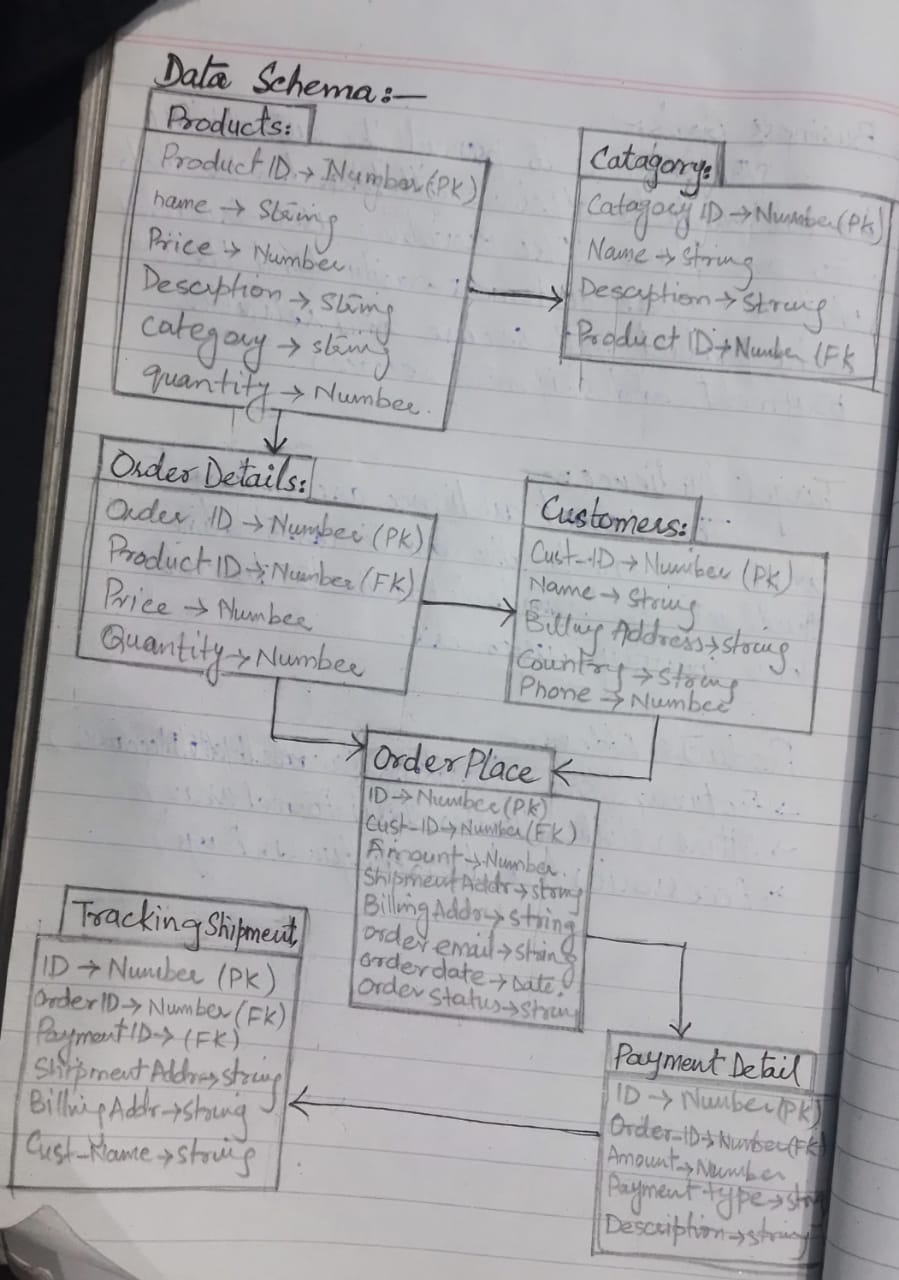 Data Schema:—
Products:
Product ID → Number (PK)
name → String
Price → Number
Desciption → String
Category → string
quantity → Number.
Catagory:
Catagory ID → Number (PK)
Name → String
Desciption → String
Product ID → Number (FK
Order Details:
Order ID → Number (PK)
Product ID → Number (FK)
Price → Number
Quantity → Number
Customers:
Cust-ID → Number (PK)
Name → String
Billing Address → String.
Country → String
Phone → Number
Order Place
ID → Number (PK)
Cust-ID → Number (FK)
Amount → Number.
Shipment Addr → string
Billing Addr → String
order email → string
order date → Date.
Order Status → String
Tracking Shipment
ID → Number (PK)
Order ID → Number (FK)
Payment ID → (FK)
Shipment Addr → string
Billing Addr → String
Cust-Name → String
Payment Detail
ID → Number (PK)
Order-ID → Number (FK)
Amount → Number
Payment type → stri
Description → string